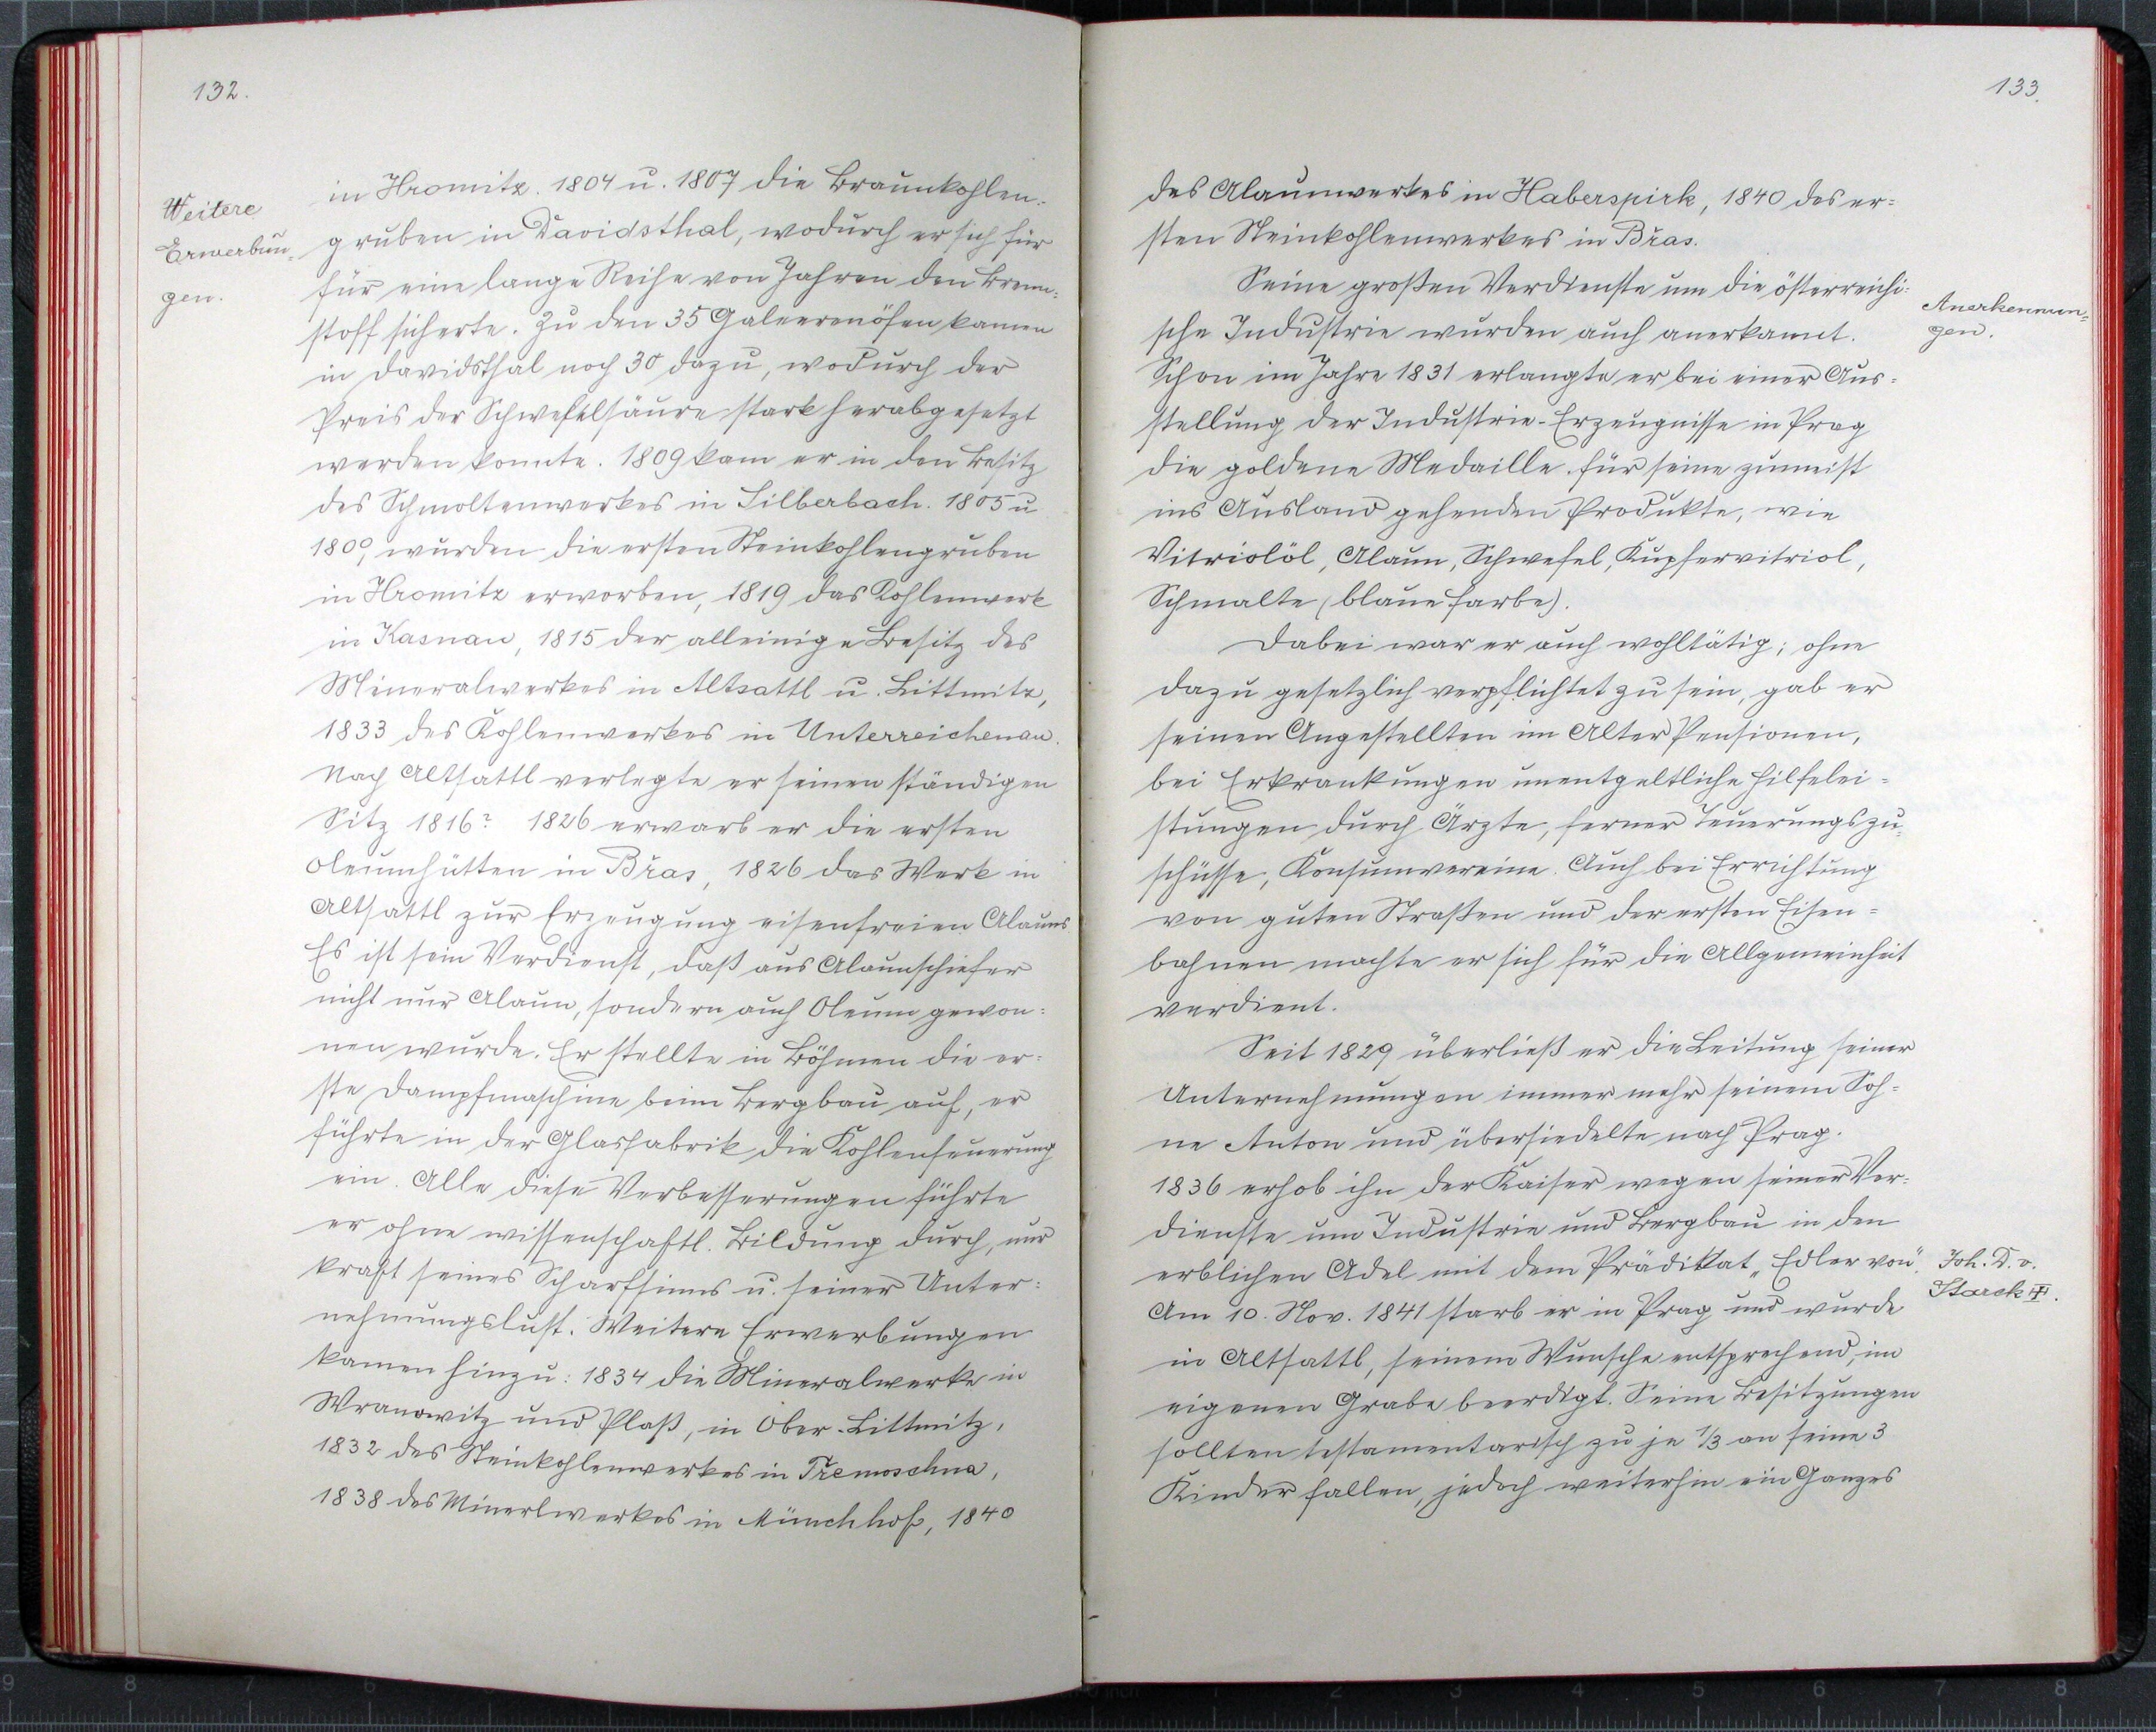 132.
Weitere
Erwerbun=
gen.
in Hromitz. 1804 u. 1807 die Braunkohlen-
gruben in Davidsthal, wodurch er sich für
für eine lange Reihe von Jahren den Brenn=
stoff sicherte. Zu den 35 Galeerenöfen kamen
in Davidsthal noch 30 dazu, wodurch der
Preis der Schwefelsäure stark herabgesetzt
werden konnte. 1809 kam er in den Besitz
des Schmoltenwerkes in Silberbach. 1805 u
1809, wurden die ersten Steinkohlengruben
in Hromitz erworben, 1819 das Kohlenwerk
in Kasnau, 1815 der alleinige Besitz des
Mineralwerkes in Altsattl u. Littmitz,
1833 des Kohlenwerkes in Unterreichenau.
Nach Altsattl verlegte er seinen ständigen
Sitz 1816? 1826 erwarb er die ersten
Oleumhütten in Břas, 1826 das Werk in
Altsattl zur Erzeugung eisenfreien Alauns
Es ist sein Verdienst, daß aus Alaunschiefer
nicht nur Alaun, sondern auch Oleum gewon=
nen wurde. Er stellte in Böhmen die er=
ste Dampfmaschine beim Bergbau auf, er
führte in der Glasfabrik die Kohlenfeuerung
ein. Alle diese Verbesserungen führte
er ohne wissenschaftl. Bildung durch, nur
kraft seines Scharfsinns u. seiner Unter=
nehmungslust. Weitere Erwerbungen
kamen hinzu: 1834 die Mineralwerke in
Wranowitz und Plaß, in Ober-Littmitz,
1832 des Steinkohlenwerkes in Třemoschna,
1838 des Minerlwerkes in Münchhof, 1840
133.
des Alaunwerkes in Haberspirk, 1840 des er=
sten Steinkohlenwerkes in Břas.
Seine großen Verdienste um die österreichi=
sche Industrie wurden auch anerkannt.
Anerkennun=
gen.
Schon im Jahre 1831 erlangte er bei einer Aus=
stellung der Industrie-Erzeugnisse in Prag
die goldene Medaille für seine zumeist
ins Ausland gehenden Produkte, wie
Vitriolöl, Alaun, Schwefel, Kupfervitriol,
Schmalte (blaue Farbe).
Dabei war er auch wohltätig; ohne
dazu gesetzlich verpflichtet zu sein, gab er
seinen Angestellten im Alter Pensionen,
bei Erkrankungen unentgeltliche Hilfelei=
stungen durch Ärzte, ferner Teuerungszu=
schüsse, Konsumvereine. Auch bei Errichtung
von guten Straßen und der ersten Eisen=
bahnen machte er sich für die Allgemeinheit
verdient.
Seit 1829 überließ er die Leitung seiner
Unternehmungen immer mehr seinem Soh=
ne Anton und übersiedelte nach Prag.
1836 erhob ihn der Kaiser wegen seiner Ver=
dienste um Industrie und Bergbau in den
erblichen Adel mit dem Prädikat „Edler von“.
Am 10. Nov. 1841 starb er in Prag und wurde
Joh. D. v.
Starck ✝.
in Altsattl, seinem Wunsche entsprechend, im
eigenen Grabe beerdigt. Seine Besitzungen
sollten testamentarisch zu je 1/3 an seine 3
Kinder fallen, jedoch weiterhin ein Ganzes